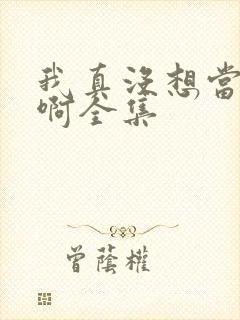 我真没想當
啊全集
曾蔭權